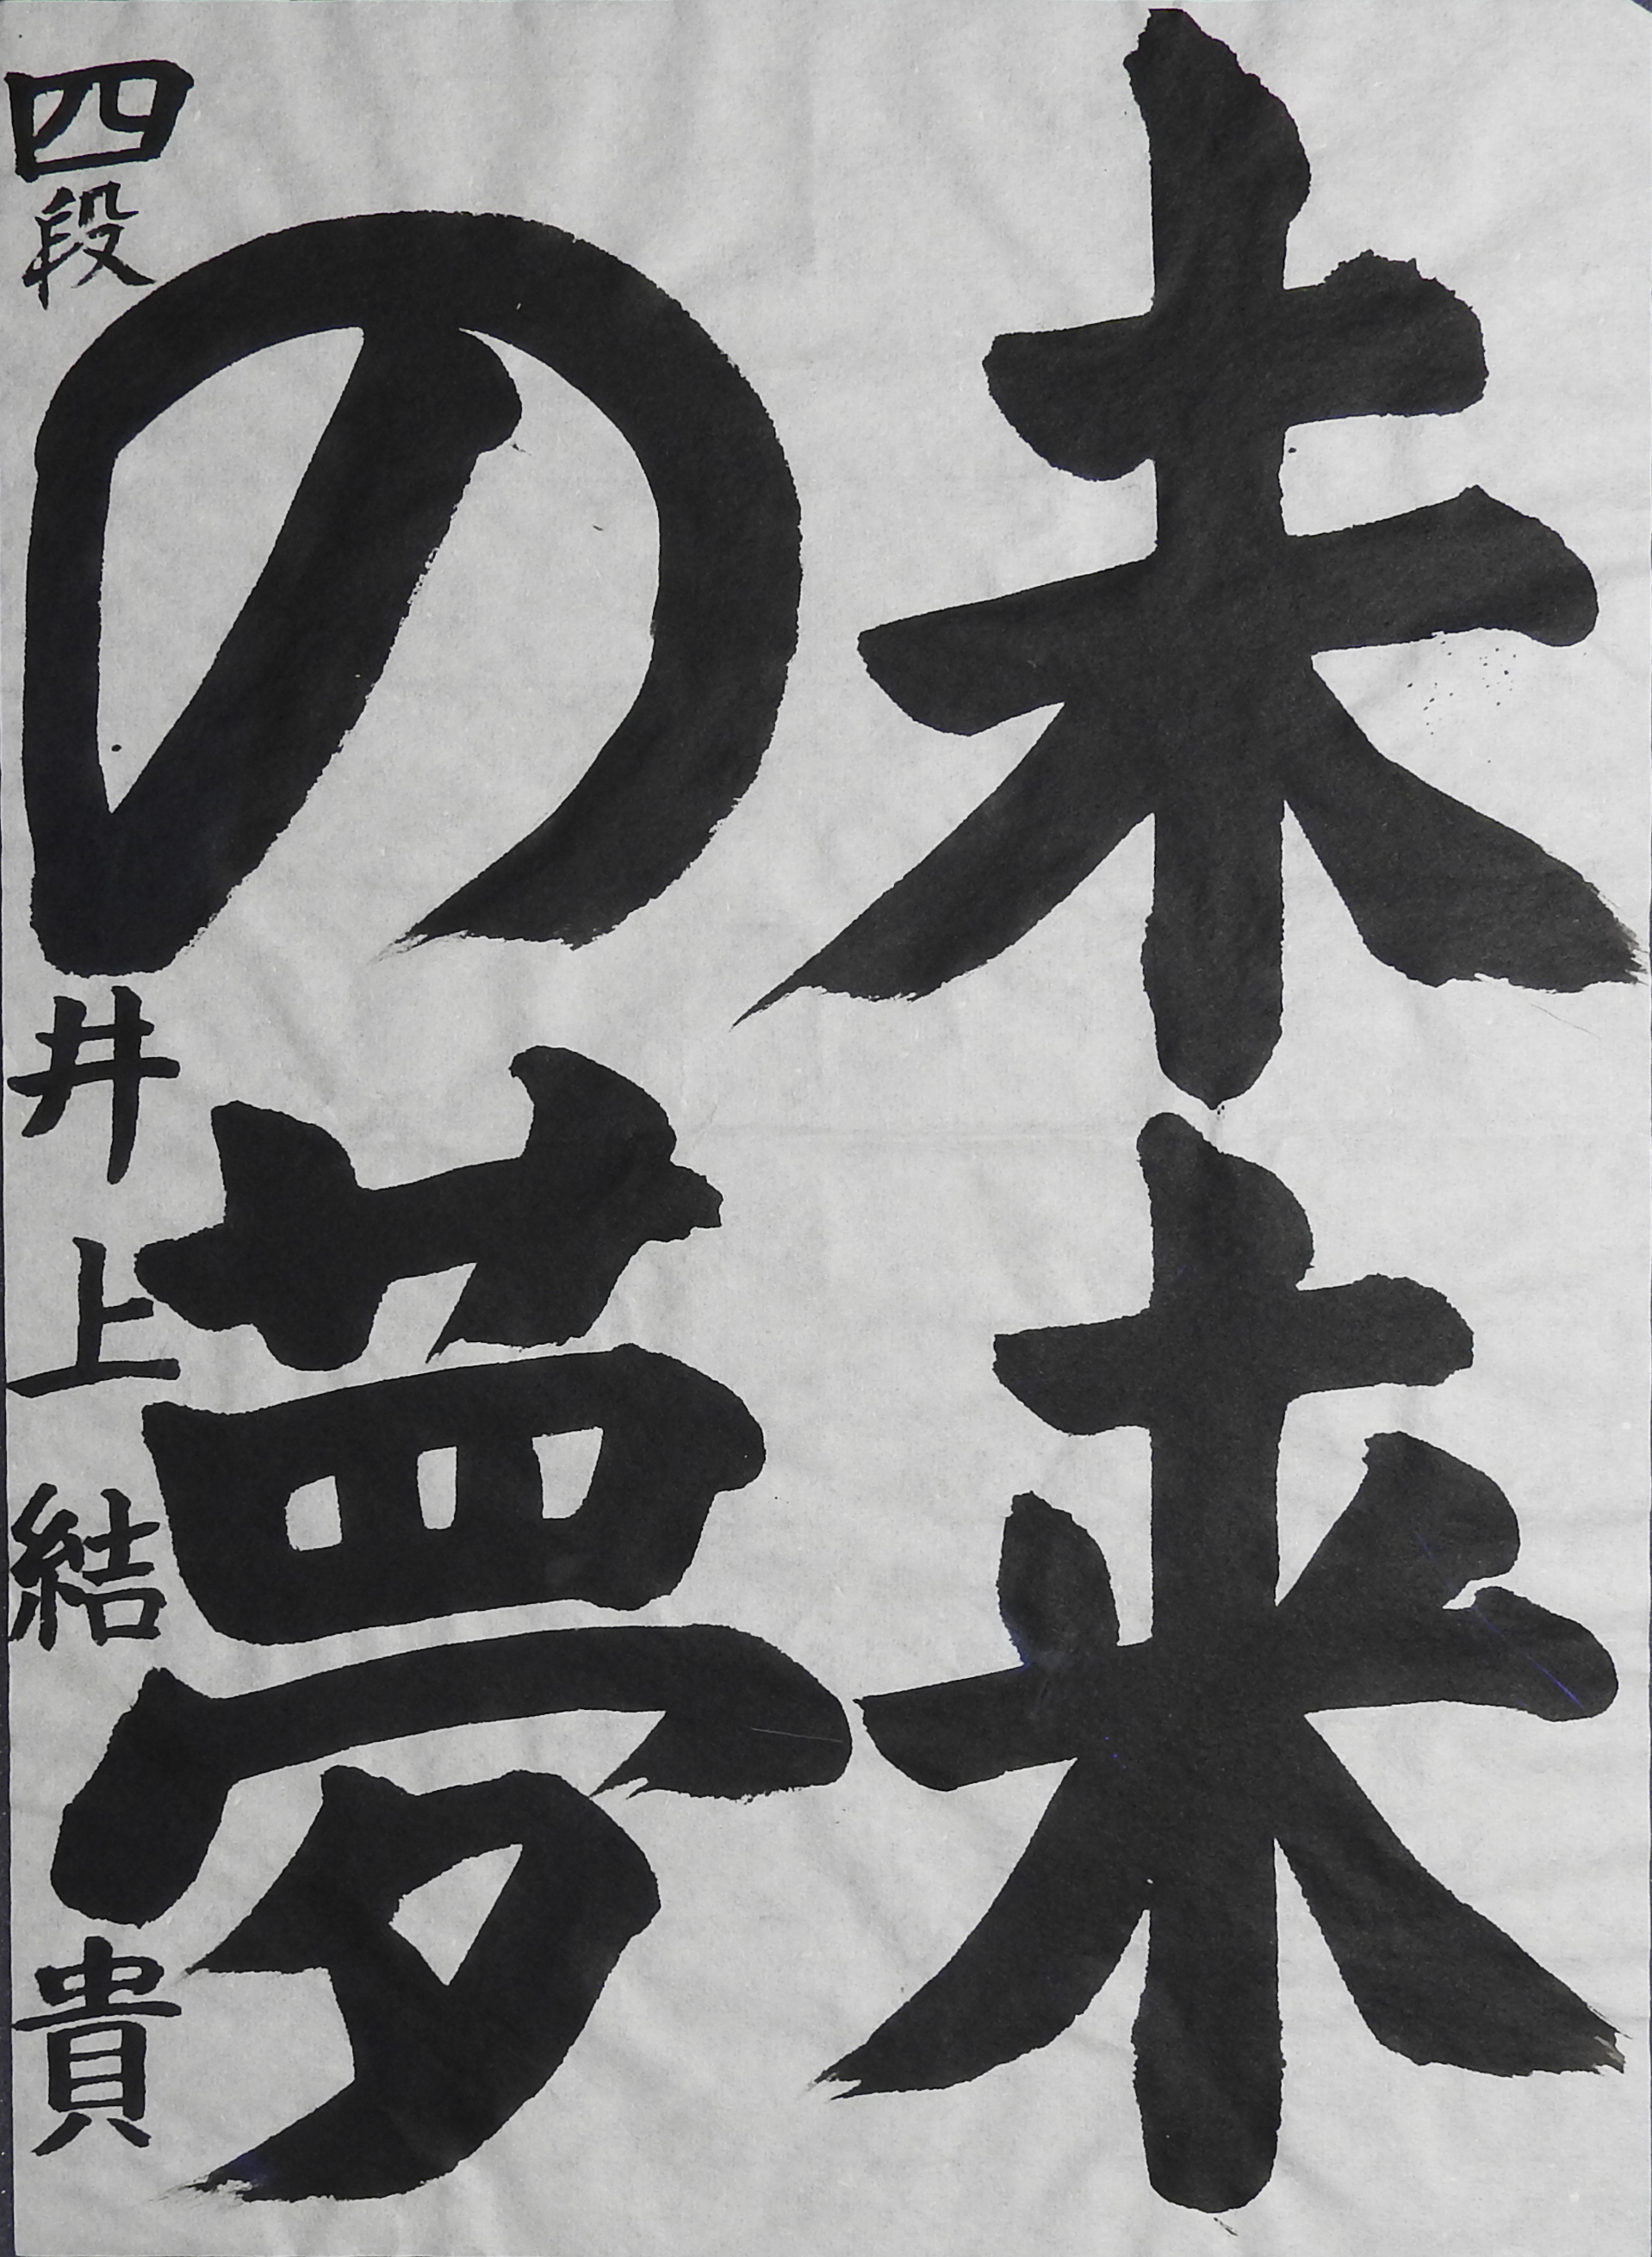 未来
の夢
四段 井上結貴